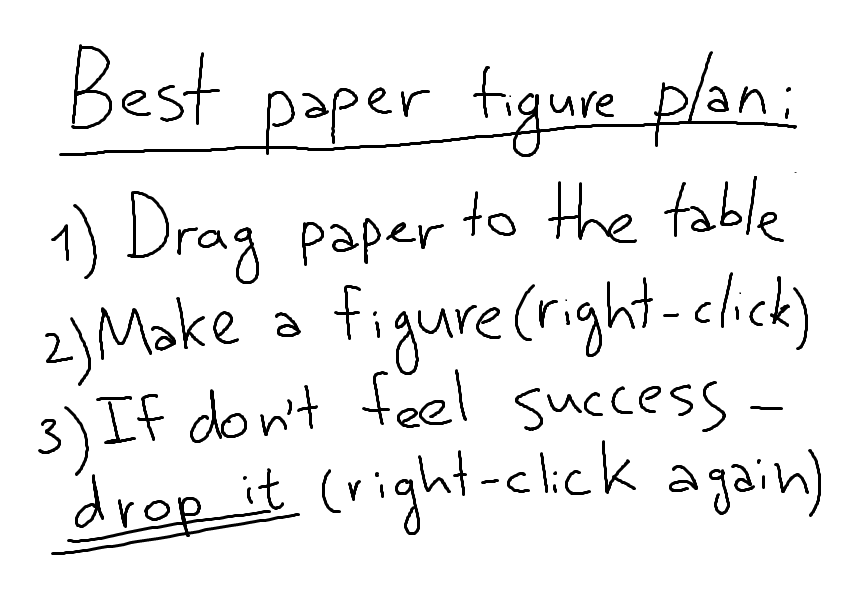 Best paper figure plan:
1) Drag paper to the table
2) Make a figure (right-click)
3) If don't feel success –
drop it (right-click again)